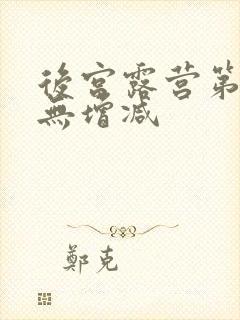 後宮露营第
無增减
鄭克